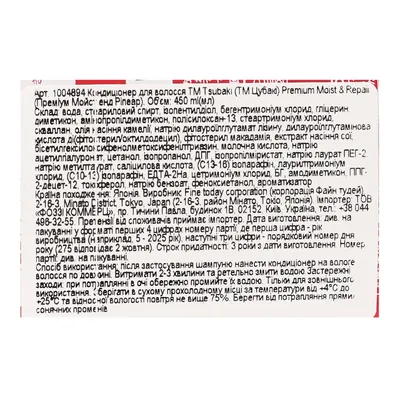 Арт. 1004894 Кондиціонер для волосся ТМ Tsubaki (ТМ Цубакі) Premium Moist & Repair
(Преміум Мойст енд Ріпеар). Об'єм: 450 ml(мл)
Склад: вода, стеариловий спирт, ізопентилдіол, бегентримоніум хлорид, гліцерин,
диметикон, амінопропілдиметикон, полісилоксан-13, стеартримоніум хлорид,
сквалан, олія насіння камелії, натрію дилауроїлглутамат лізину, дилауроїлглутамінова
кислота ди(фітостерил/октилдодецил), фітостерил макадамія, екстракт насіння вівса,
бісетилгексилоксифенолметоксифенілтриазин, молочна кислота, натрію
ацетилгіалуронат, цетанол, ізопропанол, ДПГ, ізопропілпаристат, натрію лаурат ПЕГ-2,
натрію метилтаурат, саліцилова кислота, (C13-16) ізопарафін, лаурилтримоніум
хлорид, (C10-13) ізопарафін, ЕДТА-2Na, цетримоніум хлорид, БГ, амодиметикон, ППГ-
2-децет-12, токоферол, натрію бензоат, феноксиетанол, ароматизатор
Країна походження: Японія. Виробник: Fine today corporation (корпорація Файн тудей)
2-16-3, Minato District, Tokyo, Japan (2-16-3, район Мінато, Токіо, Японія). Імпортер: ТОВ
«ФОЗЗІ КОММЕРЦ», пр. Тичини Павла, будинок 1В, 02152, м. Київ, Україна, тел. 38 044
496-32-55. Претензії від споживачів приймає імпортер. Дата виготовлення: див. на
пакуванні у форматі перших 4 цифрах номеру партії, де перша цифра - рік
виробництва (наприклад, 5 - 2025 рік), наступні три цифри - порядковий номер дня
року (275 відповідає 2 жовтня). Строк придатності: 3 роки з дати виготовлення. Номер
партії: див. на пакуванні.
Спосіб використання: після застосування шампуню нанести кондиціонер на вологе
волосся по довжині. Витримати 2-3 хвилини та ретельно змити водою. Застережні
заходи: при потраплянні в очі обережно промийте їх водою. Тільки для зовнішнього
використання. Зберігати в сухому прохолодному місці за температури від +4°C до
+25°C та відносної вологості повітря не вище 75%. Берегти від потрапляння прямих
сонячних променів.